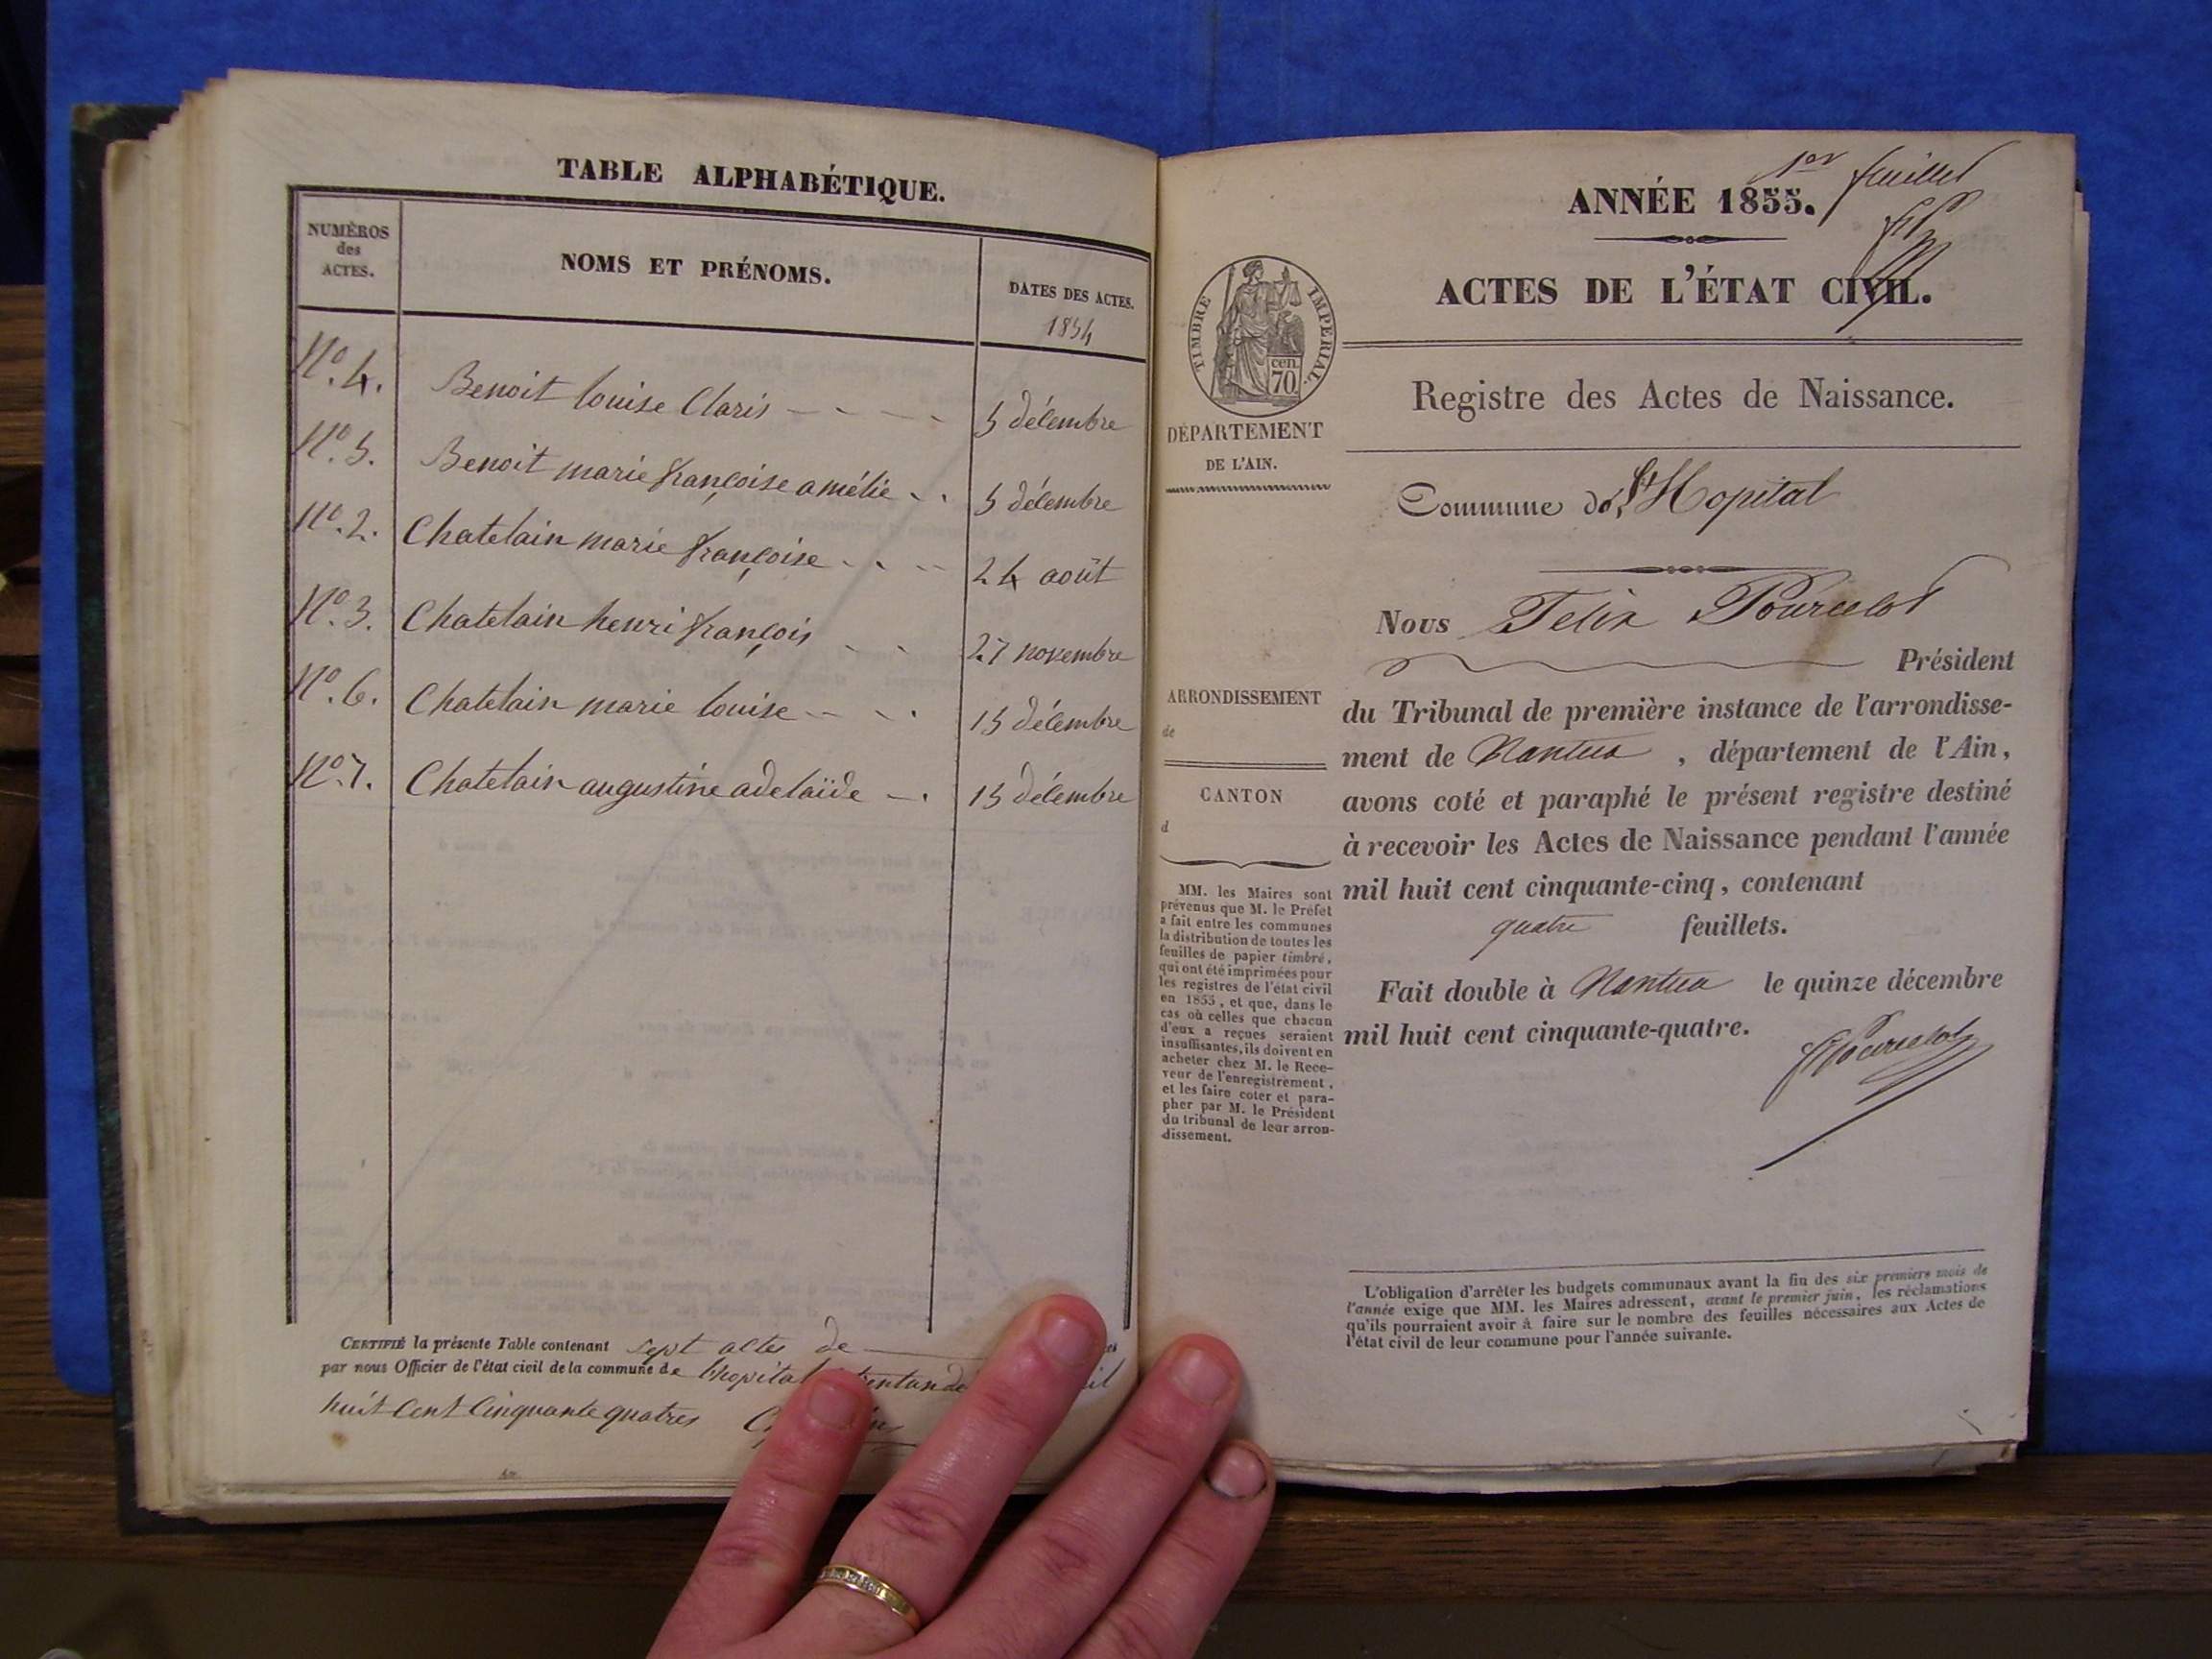 TABLE ALPHABÉTIQUE.
NUMÉROS
des
ACTES.
NOMS ET PRÉNOMS.
DATES DES ACTES.
1854
N° 4. Benoit louise Claris 5 décembre
N° 5. Benoit marie françoise amélie 5 décembre
N° 2. Chatelain marie françoise 24 août
N° 3. Chatelain henri françois 27 novembre
N° 6. Chatelain marie louise 15 décembre
N° 7. Chatelain augustine adelaïde 15 décembre
CERTIFIÉ la présente Table contenant sept actes de
par nous Officier de l'état civil de la commune de l'hopital
huit cent cinquante quatres
1er feuillet
ANNÉE 1855.
ACTES DE L'ÉTAT CIVIL.
TIMBRE IMPÉRIAL.
cen.
70
DÉPARTEMENT
DE L'AIN.
Registre des Actes de Naissance.
Commune de l'Hopital
Nous Felix Pourcelot
Président
ARRONDISSEMENT
de
CANTON
d
du Tribunal de première instance de l'arrondisse-
ment de Nantua , département de l'Ain,
avons coté et paraphé le présent registre destiné
à recevoir les Actes de Naissance pendant l'année
mil huit cent cinquante-cinq, contenant
quatre feuillets.
Fait double à Nantua le quinze décembre
mil huit cent cinquante-quatre.
FPourcelot
MM. les Maires sont
prévenus que M. le Préfet
a fait entre les communes
la distribution de toutes les
feuilles de papier timbré,
qui ont été imprimées pour
les registres de l'état civil
en 1855, et que, dans le
cas où celles que chacun
d'eux a reçues seraient
insuffisantes, ils doivent en
acheter chez M. le Rece-
veur de l'enregistrement,
et les faire coter et para-
pher par M. le Président
du tribunal de leur arron-
dissement.
L'obligation d'arrêter les budgets communaux avant la fin des six premiers mois de
l'année exige que MM. les Maires adressent, avant le premier juin, les réclamations
qu'ils pourraient avoir à faire sur le nombre des feuilles nécessaires aux Actes de
l'état civil de leur commune pour l'année suivante.